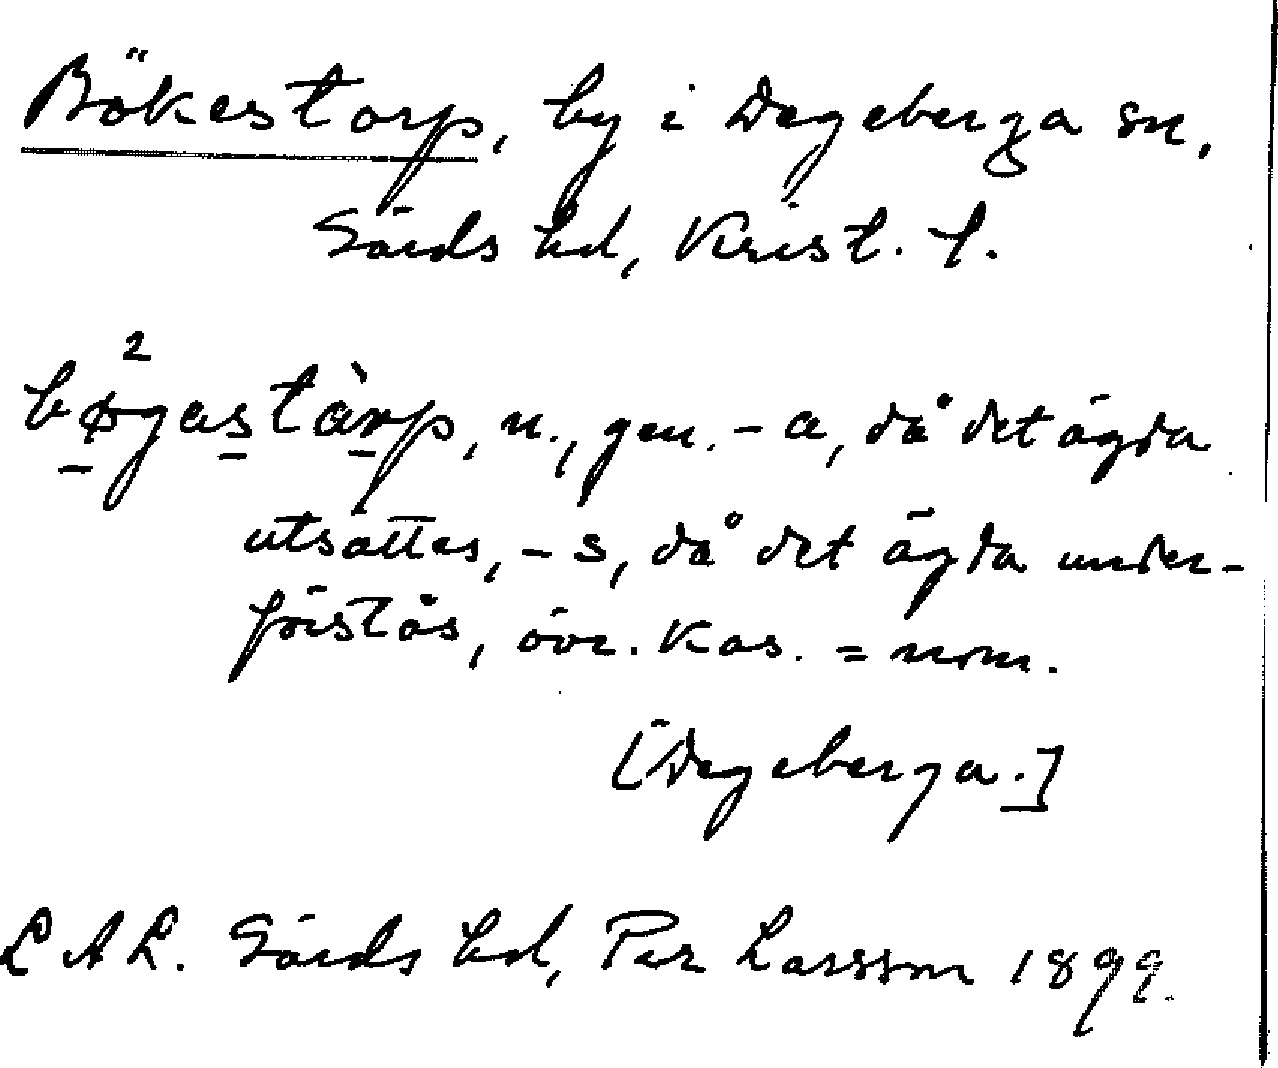 Bökestorp, by i Degeberga sn,
Gärds hd, Krist. l.
bø²gastàrp, n., gen. -a, då det ägda
utsättes, -s, då det ägda under-
förstås, övr. kas. = nom.
[Degeberga.]
LAL. Gärds hd, Per Larsson 1899.